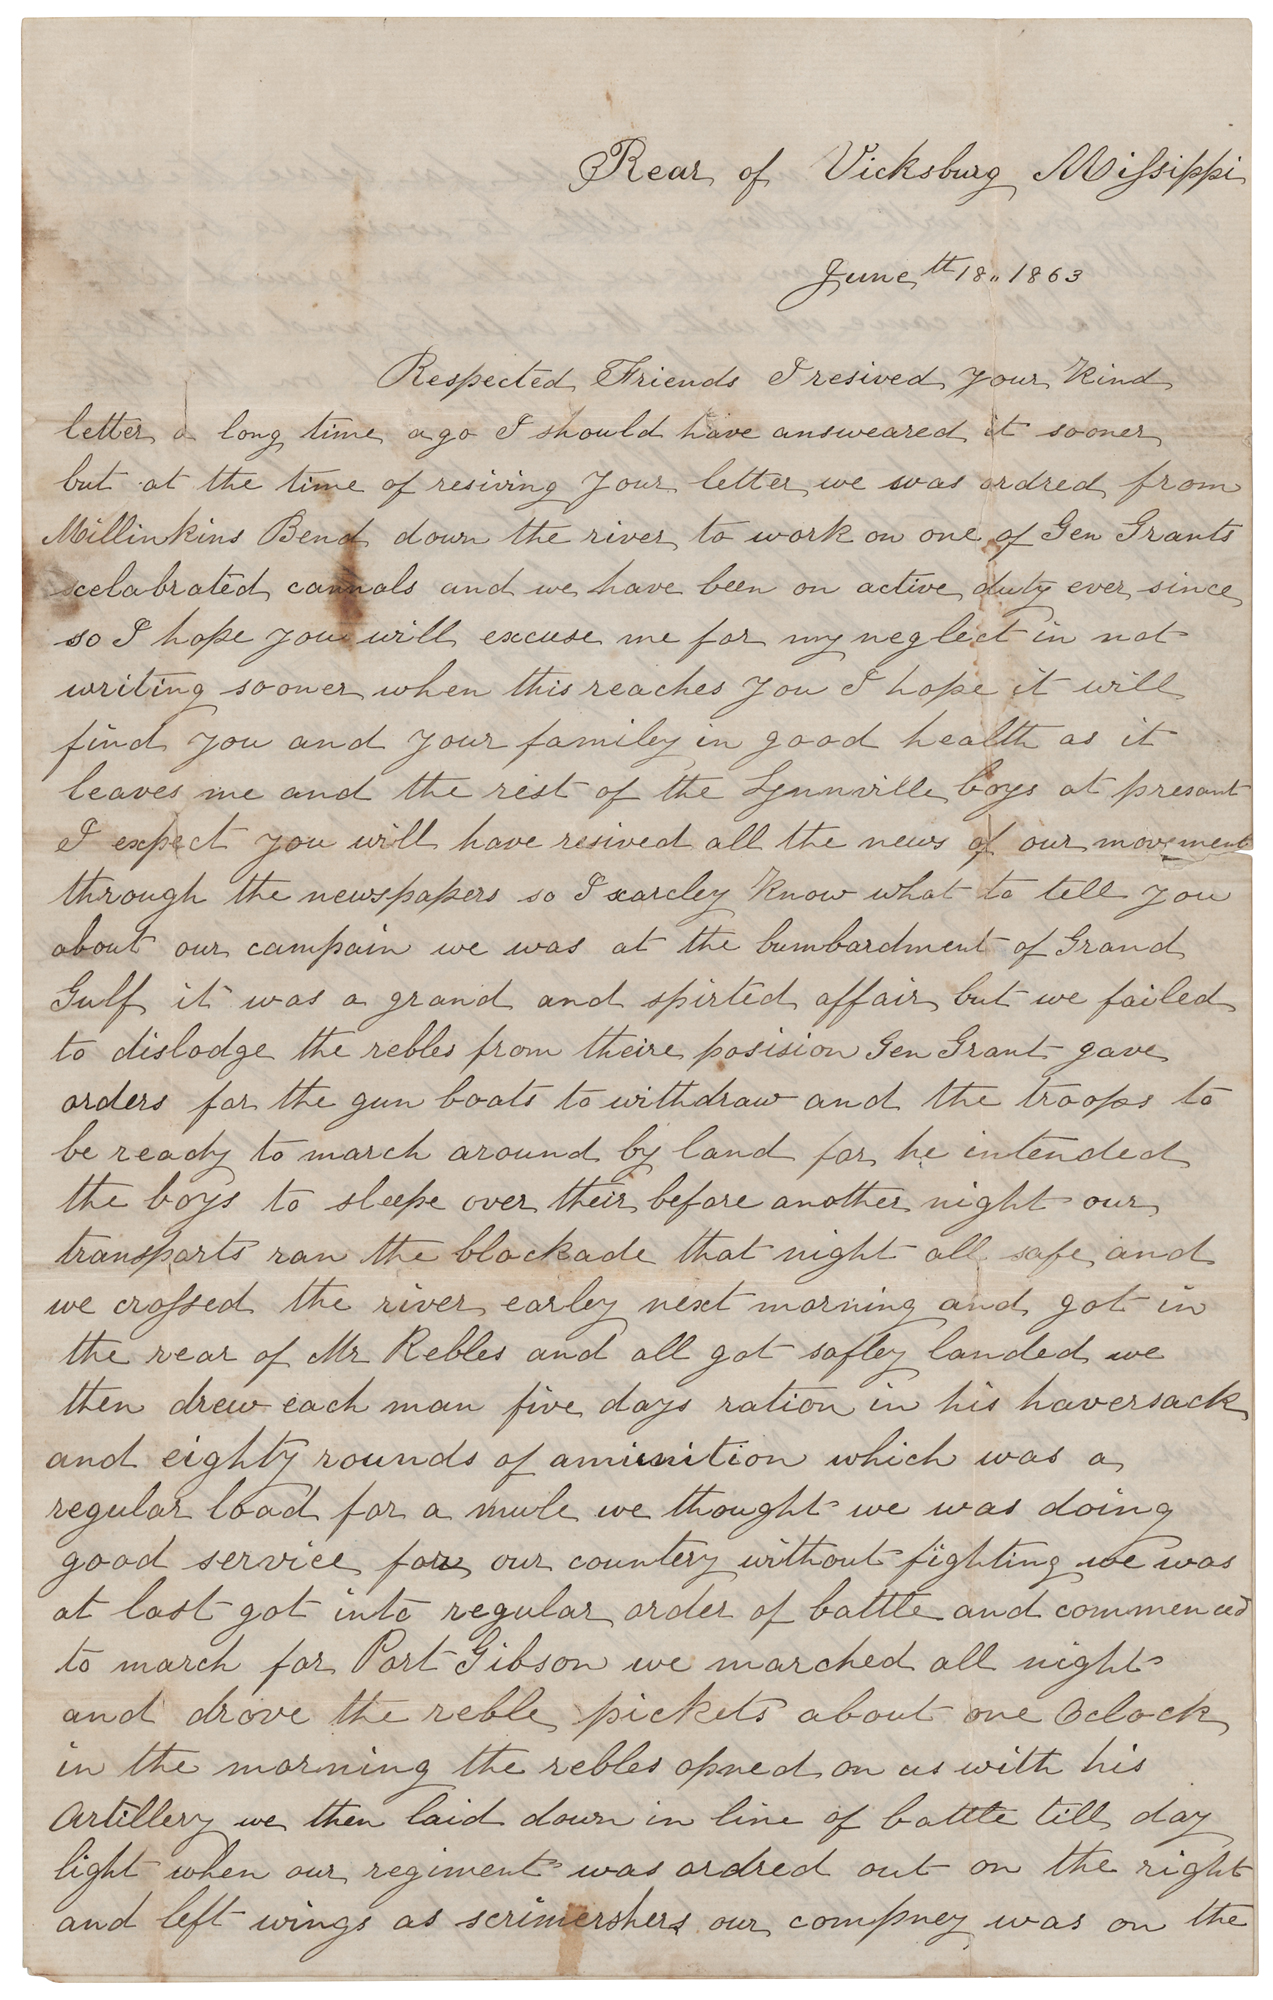 Rear of Vicksburg Missippi
June th 18,, 1863
Respected Friends I resived your kind
letter a long time ago I should have answeared it sooner
but at the time of resiving your letter we was ordred from
Millinkins Bend down the river to work on one of Gen Grants
scelabrated cannals and we have been on active duty ever since
so I hope you will excuse me for my neglect in not
writing sooner when this reaches you I hope it will
find you and your familey in good health as it
leaves me and the rest of the Lynnville boys at presant
I expect you will have resived all the news of our movement
through the newspapers so I xarcley know what to tell you
about our campain we was at the bumbardment of Grand
Gulf it was a grand and spirted affair but we failed
to dislodge the rebles from theire posision Gen Grant gave
orders for the gun boats to withdraw and the troops to
be ready to march around by land for he intended
the boys to sleepe over their before another night our
transports ran the blockade that night all safe and
we crossed the river earley next morning and got in
the rear of Mr Rebles and all got safley landed we
then drew each man five days ration in his haversack
and eighty rounds of amiunition which was a
regular load for a mule we thought we was doing
good service for our countery without fighting we was
at last got into regular order of battle and commenced
to march for Port Gibson we marched all night
and drove the reble pickets about one Oclock
in the morning the rebles opned on us with his
Artillery we then laid down in line of battle till day
light when our regiment was ordred out on the right
and left wings as scrimershers our compney was on the